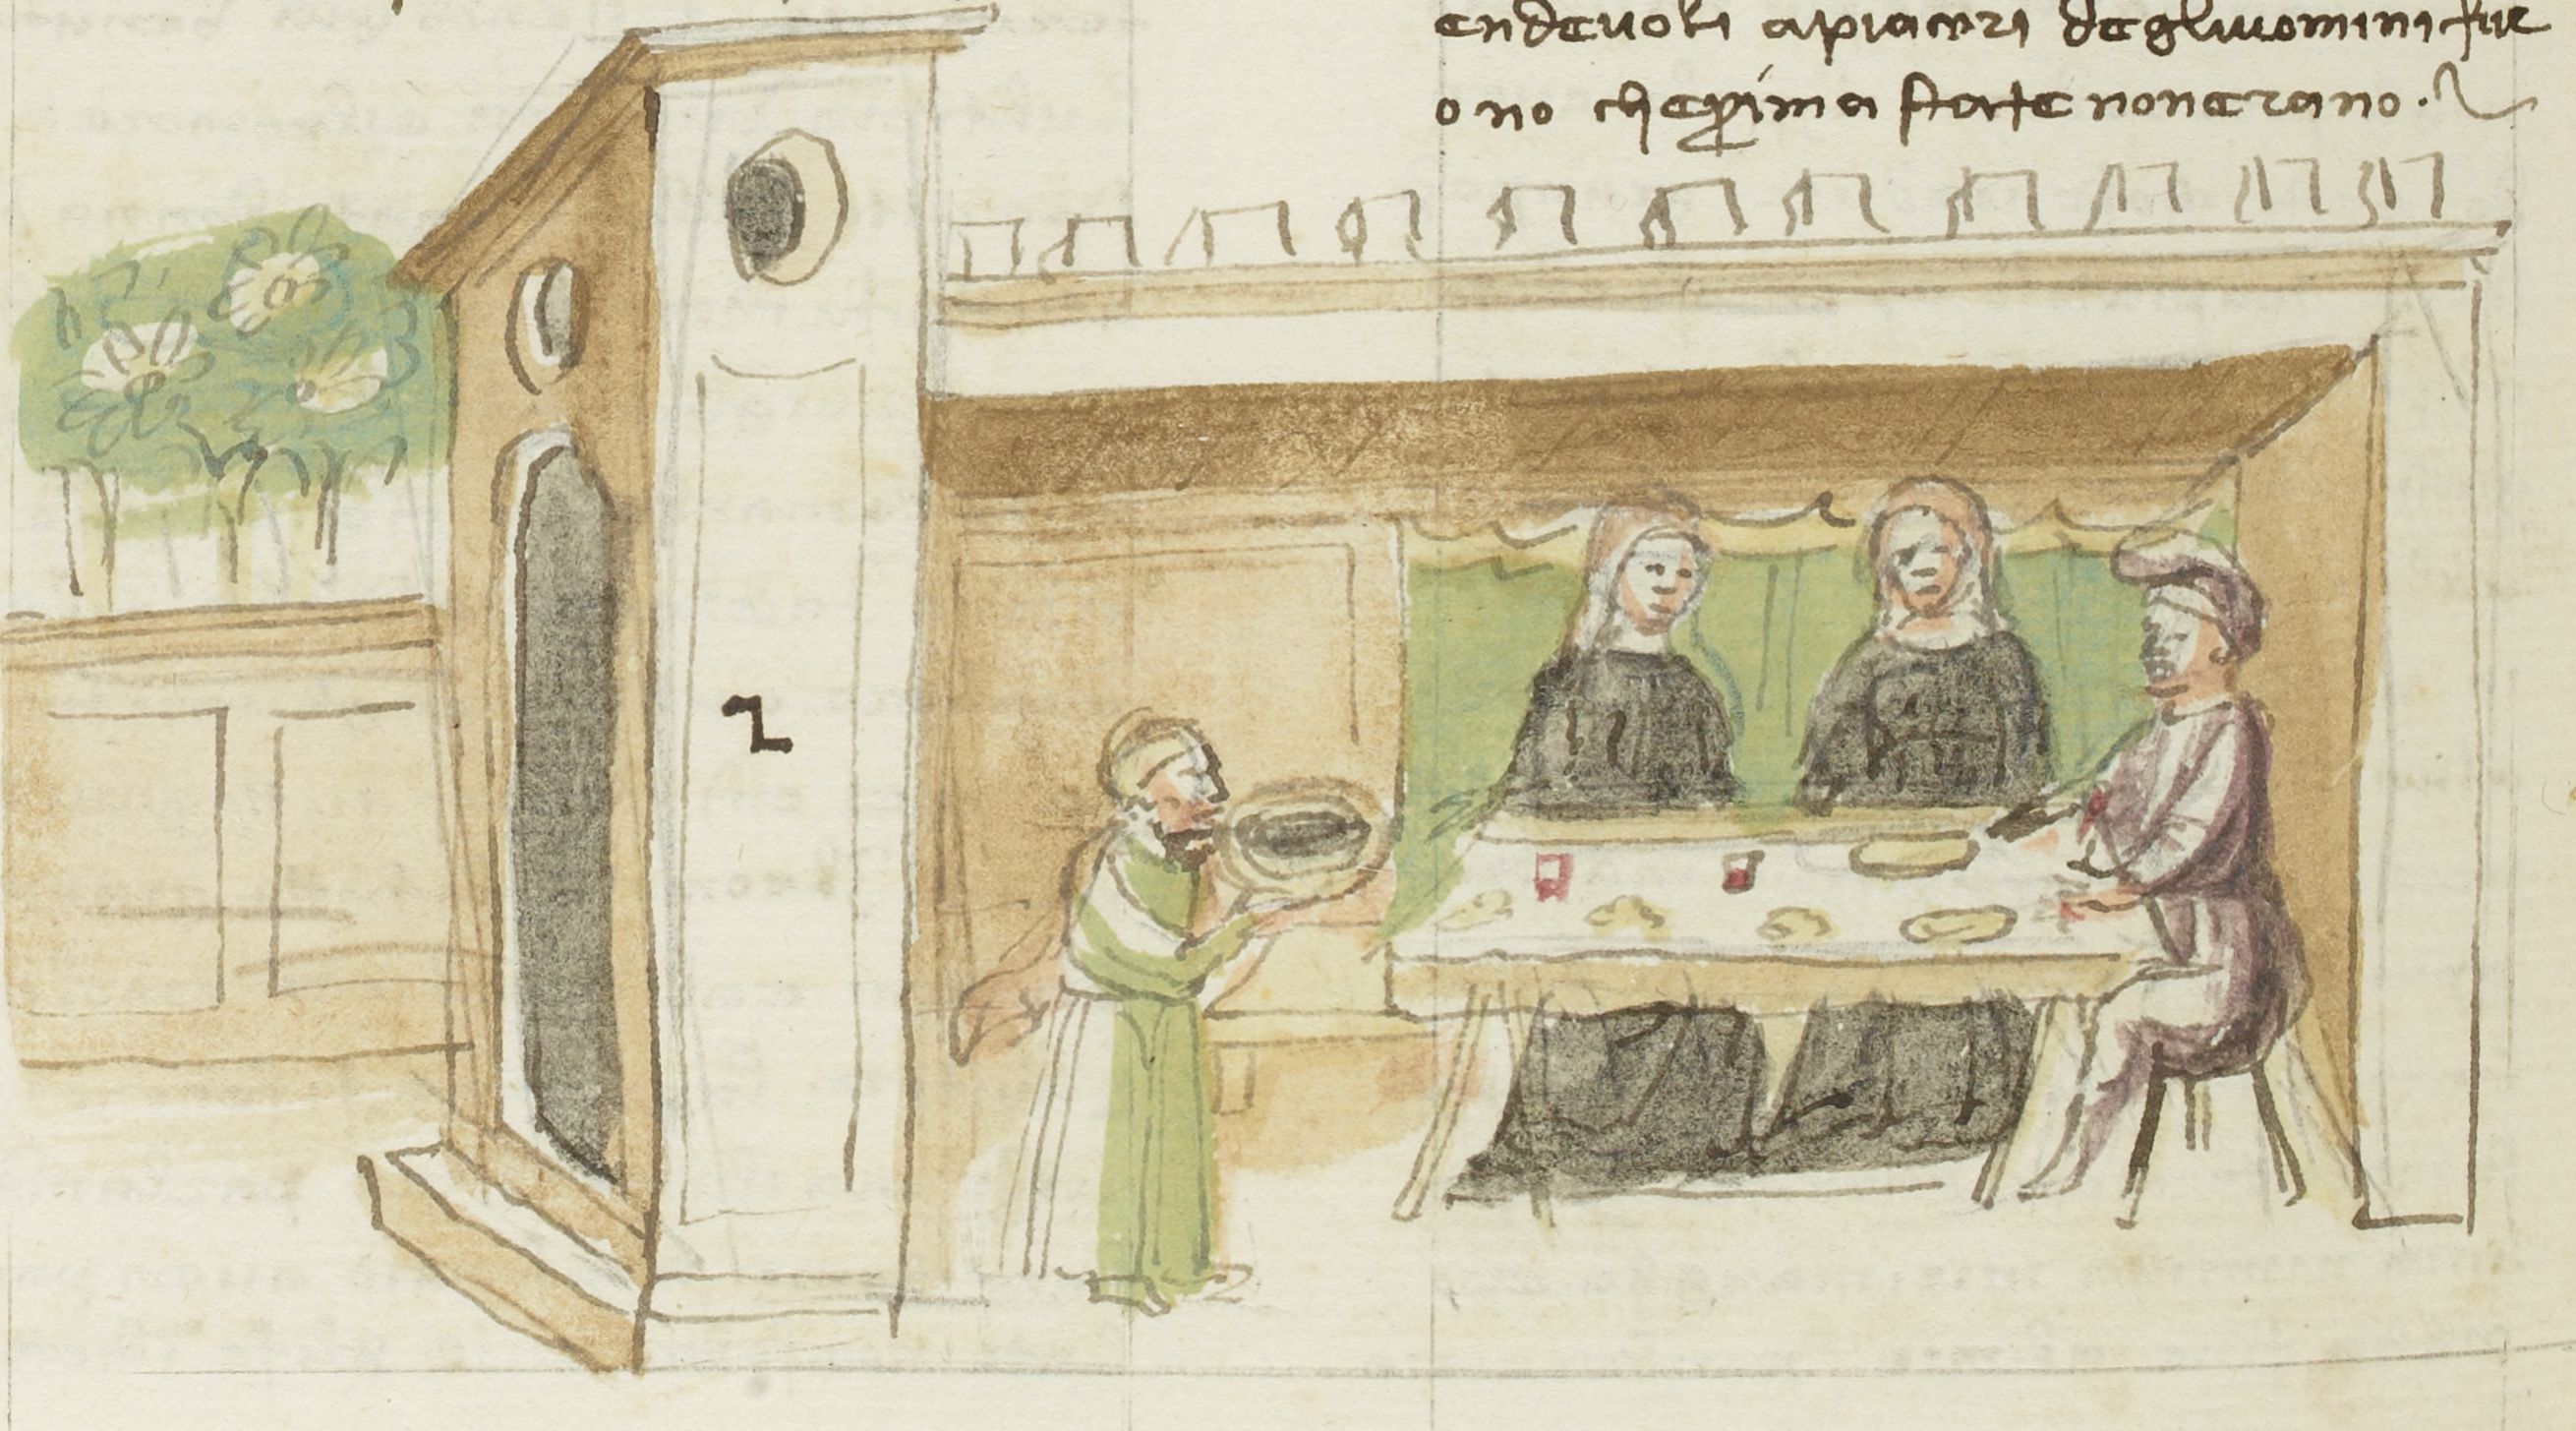 endevoli a piaceri degli uomini fur
ono che pima state non erano.
2